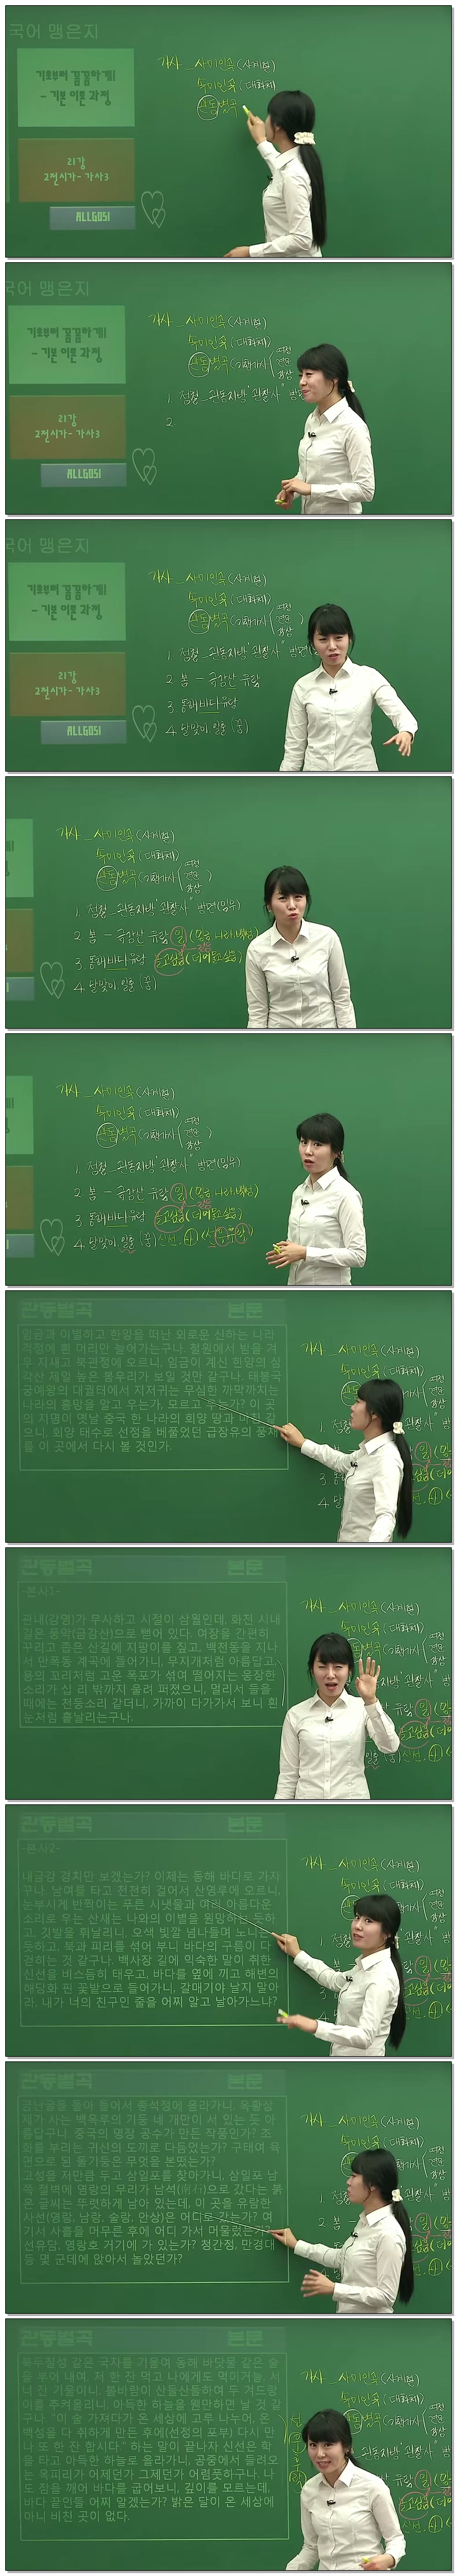 국어 맹은지
기초부터 꼼꼼하게!!
- 기본 이론 과정
21강
고전시가- 가사3
ALLGOSI
가사 _ 사미인곡 (사계절)
속미인곡 (대화체
관동별곡
국어 맹은지
기초부터 꼼꼼하게!!
- 기본 이론 과정
21강
고전시가- 가사3
ALLGOSI
가사 _ 사미인곡 (사계절)
속미인곡 (대화체)
관동별곡 (기행가사
여정
견문
감상
1. 정철_관동지방 "관찰사"
2
국어 맹은지
기초부터 꼼꼼하게!!
- 기본 이론 과정
21강
고전시가- 가사3
ALLGOSI
가사 _ 사미인곡 (사계절)
속미인곡 (대화체)
관동별곡 (기행가사
여정
견문
감상
1. 정철_관동지방 "관찰사"
2. 봄 - 금강산 유람
3. 동해바다유람
4. 달맞이, 일출 (꿈)
가사 _ 사미인곡 (사계절)
속미인곡 (대화체)
관동별곡 (기행가사
여정
견문
감상
1. 정철_관동지방 "관찰사"
2. 봄 - 금강산 유람
3. 동해바다유람
4. 달맞이, 일출 (꿈)
가사 _ 사미인곡 (사계절)
속미인곡 (대화체)
관동별곡 (기행가사
여정
견문
감상
1. 정철_관동지방 "관찰사"
2. 봄 - 금강산 유람
3. 동해바다유람
4. 달맞이, 일출 (꿈) 신선
관동별곡 본문
임금과 이별하고 한양을 떠난 외로운 신하는 나라
걱정에 흰 머리만 늘어가는구나. 철원에서 밤을 겨
우 지새고 북관정에 오르니, 임금이 계신 한양의 삼
각산 제일 높은 봉우리가 보일 것만 같구나. 태봉국
궁예왕의 대궐터에서 지저귀는 무심한 까막까치는
나라의 흥망을 알고 우는가, 모르고 우는가? 이 곳
의 지명이 옛날 중국 한 나라의 회양 땅과
으니, 회양 태수로 선정을 베풀었던 급장유의 풍채
를 이 곳에서 다시 볼 것인가.
가사 _ 사미인곡 (사계절)
속미인곡 (대화체)
관동별곡 본문
-본사1-
관내(감영)가 무사하고 시절이 삼월인데, 화천 시내
길은 풍악(금강산)으로 뻗어 있다. 여장을 간편히
꾸리고 좁은 산길에 지팡이를 짚고, 백천동을 지나
서 만폭동 계곡에 들어가니, 무지개처럼 아름답고,
용의 꼬리처럼 고운 폭포가 섞여 떨어지는 웅장한
소리가 십 리 밖까지 울려 퍼졌으니, 멀리서 들을
때에는 천둥소리 같더니, 가까이 다가가서 보니 흰
눈처럼 흩날리는구나.
가사 _ 사미인곡 (사계절)
속미인곡 (대화체)
관동별곡 본문
-본사2-
내금강 경치만 보겠는가? 이제는 동해 바다로 가자
구나. 남여를 타고 천천히 걸어서 산영루에 오르니,
눈부시게 반짝이는 푸른 시냇물과 여러 아름다운
소리로 우는 산새는 나와의 이별을 원망하는 듯하
고, 깃발을 휘날리니, 오색 빛깔 넘나들며 노니는
듯하고, 북과 피리를 섞어 부니 바다의 구름이 다
걷히는 것 같구나. 백사장 길에 익숙한 말이 취한
신선을 비스듬히 태우고, 바다를 옆에 끼고 해변의
해당화 핀 꽃밭으로 들어가니, 갈매기야 날지 말아
라, 내가 너의 친구인 줄을 어찌 알고 날아가느냐?
가사 _ 사미인곡 (사계절)
속미인곡 (대화체)
관동별곡 본문
금난굴을 돌아 들어서 총석정에 올라가니, 옥황상
제가 사는 백옥루의 기둥 네 개만이 서 있는 듯 아
름답구나. 중국의 명장 공수가 만든 작품인가? 조
화를 부리는 귀신의 도끼로 다듬었는가? 구태여 육
면으로 된 돌기둥은 무엇을 본떴는가?
고성을 저만큼 두고 삼일포를 찾아가니, 삼일포 남
쪽 절벽에 영랑의 무리가 남석(南石)으로 갔다는 붉
은 글씨는 뚜렷하게 남아 있는데, 이 곳을 유람한
사선(영랑, 남랑, 술랑, 안상)은 어디로 갔는가? 여
기서 사흘을 머무른 후에 어디 가서 머물렀는가?
선유담, 영랑호 거기에 가 있는가? 청간정, 만경대
등 몇 군데에 앉아서 놀았던가?
가사 _ 사미인곡 (사계절)
속미인곡 (대화체)
관동별곡 본문
북두칠성 같은 국자를 기울여 동해 바닷물 같은 술
을 부어 내여, 저 한 잔 먹고 나에게도 먹이거늘, 서
너 잔 기울이니, 봄바람이 산들산들하여 두 겨드랑
이를 추켜올리니, 아득한 하늘도 웬만하면 날 것 같
구나. "이 술 가져다가 온 세상에 고루 나누어, 온
백성을 다 취하게 만든 후에(선정의 포부) 다시 만
나 또 한 잔 합시다." 하는 말이 끝나자 신선은 학
을 타고 아득한 하늘로 올라가니, 공중에서 들려오
는 옥피리가 어제던가 그제던가 어렴풋하구나. 나
도 잠을 깨어 바다를 굽어보니, 깊이를 모르는데,
바다 끝인들 어찌 알겠는가? 밝은 달이 온 세상에
아니 비친 곳이 없다.
가사 _ 사미인곡 (사계절)
속미인곡 (대화체)